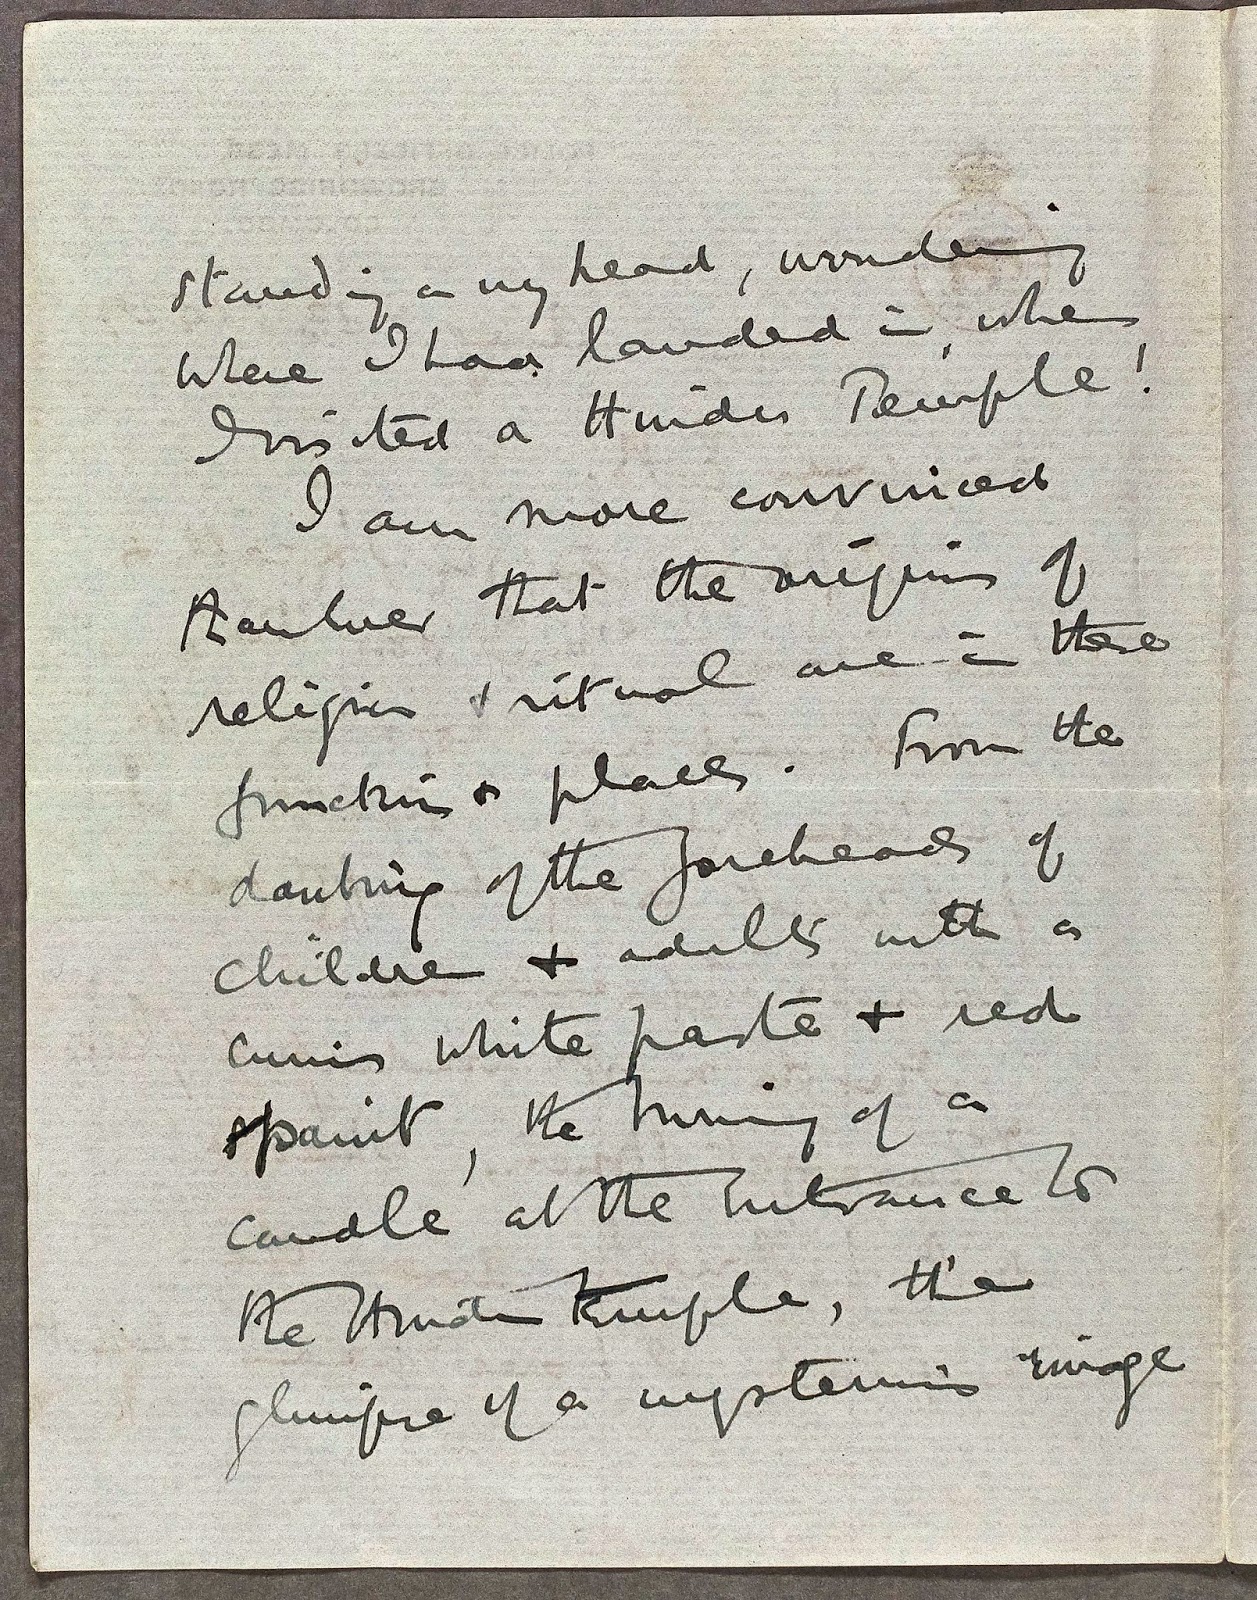 standing on my head, wondering
where I had landed in, when
I visited a Hindu Temple!
I am more convinced
than ever that the origins of
religion & ritual are in these
functions & places. From the
daubing of the foreheads of
children & adults with a
white paste & red
paint, the burning of a
candle at the entrance to
the Hindu temple, the
glimpse of a mysterious image